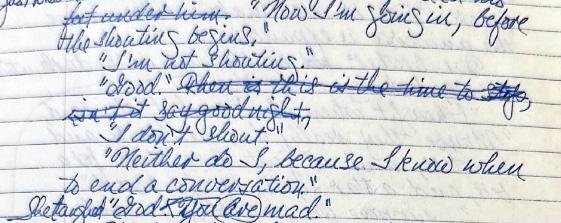 feet under him. "Now I'm going in, before
the shouting begins,"
"I'm not shouting."
"Good." Then is this is the time to stop,
isn't it say good night,
"I don't shout."
"Neither do I, because I know when
to end a conversation."
"God. You (are) mad."